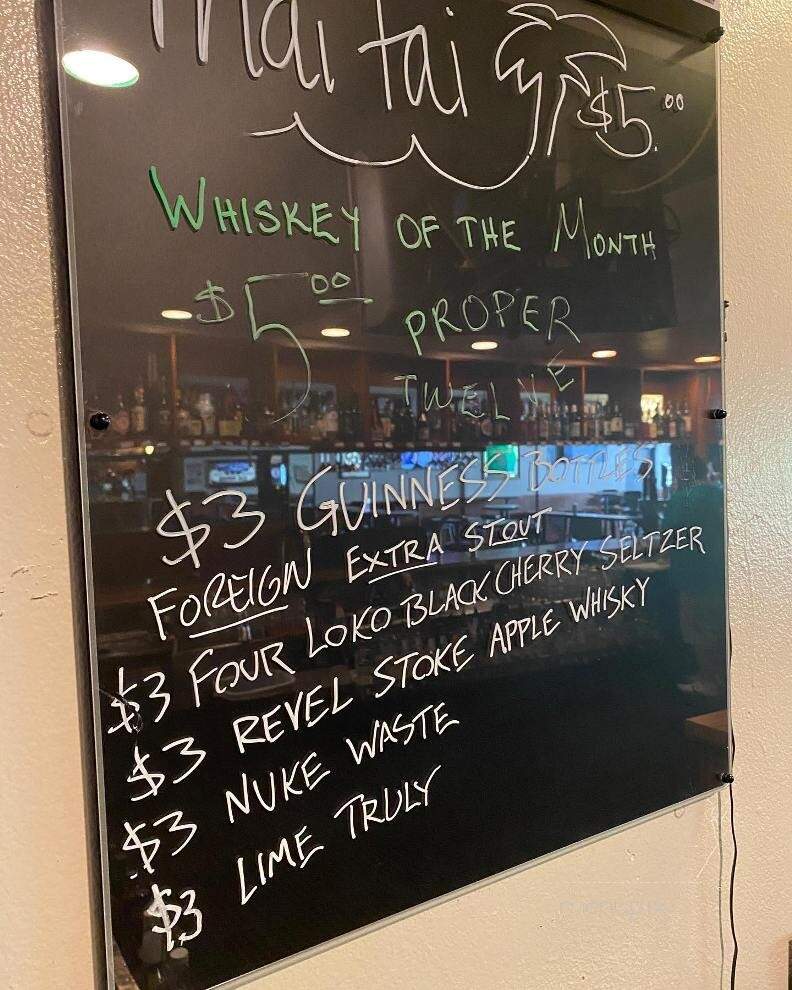 Mai Tai $5.00
WHISKEY OF THE MONTH
$5.00 PROPER
TWELVE
$3 GUINNESS BOTTLES
FOREIGN EXTRA STOUT
$3 FOUR LOKO BLACK CHERRY SELTZER
$3 REVEL STOKE APPLE WHISKY
$3 NUKE WASTE
$3 LIME TRULY